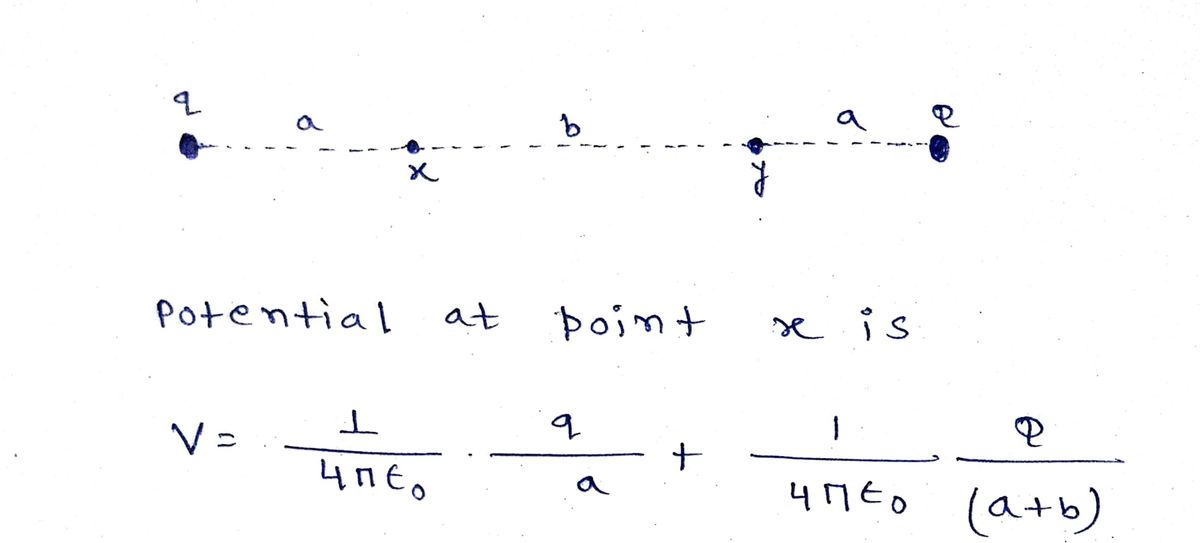 q a b a Q
x y
Potential at point x is
V = 1/4πε₀ · q/a + 1/4πε₀ Q/(a+b)